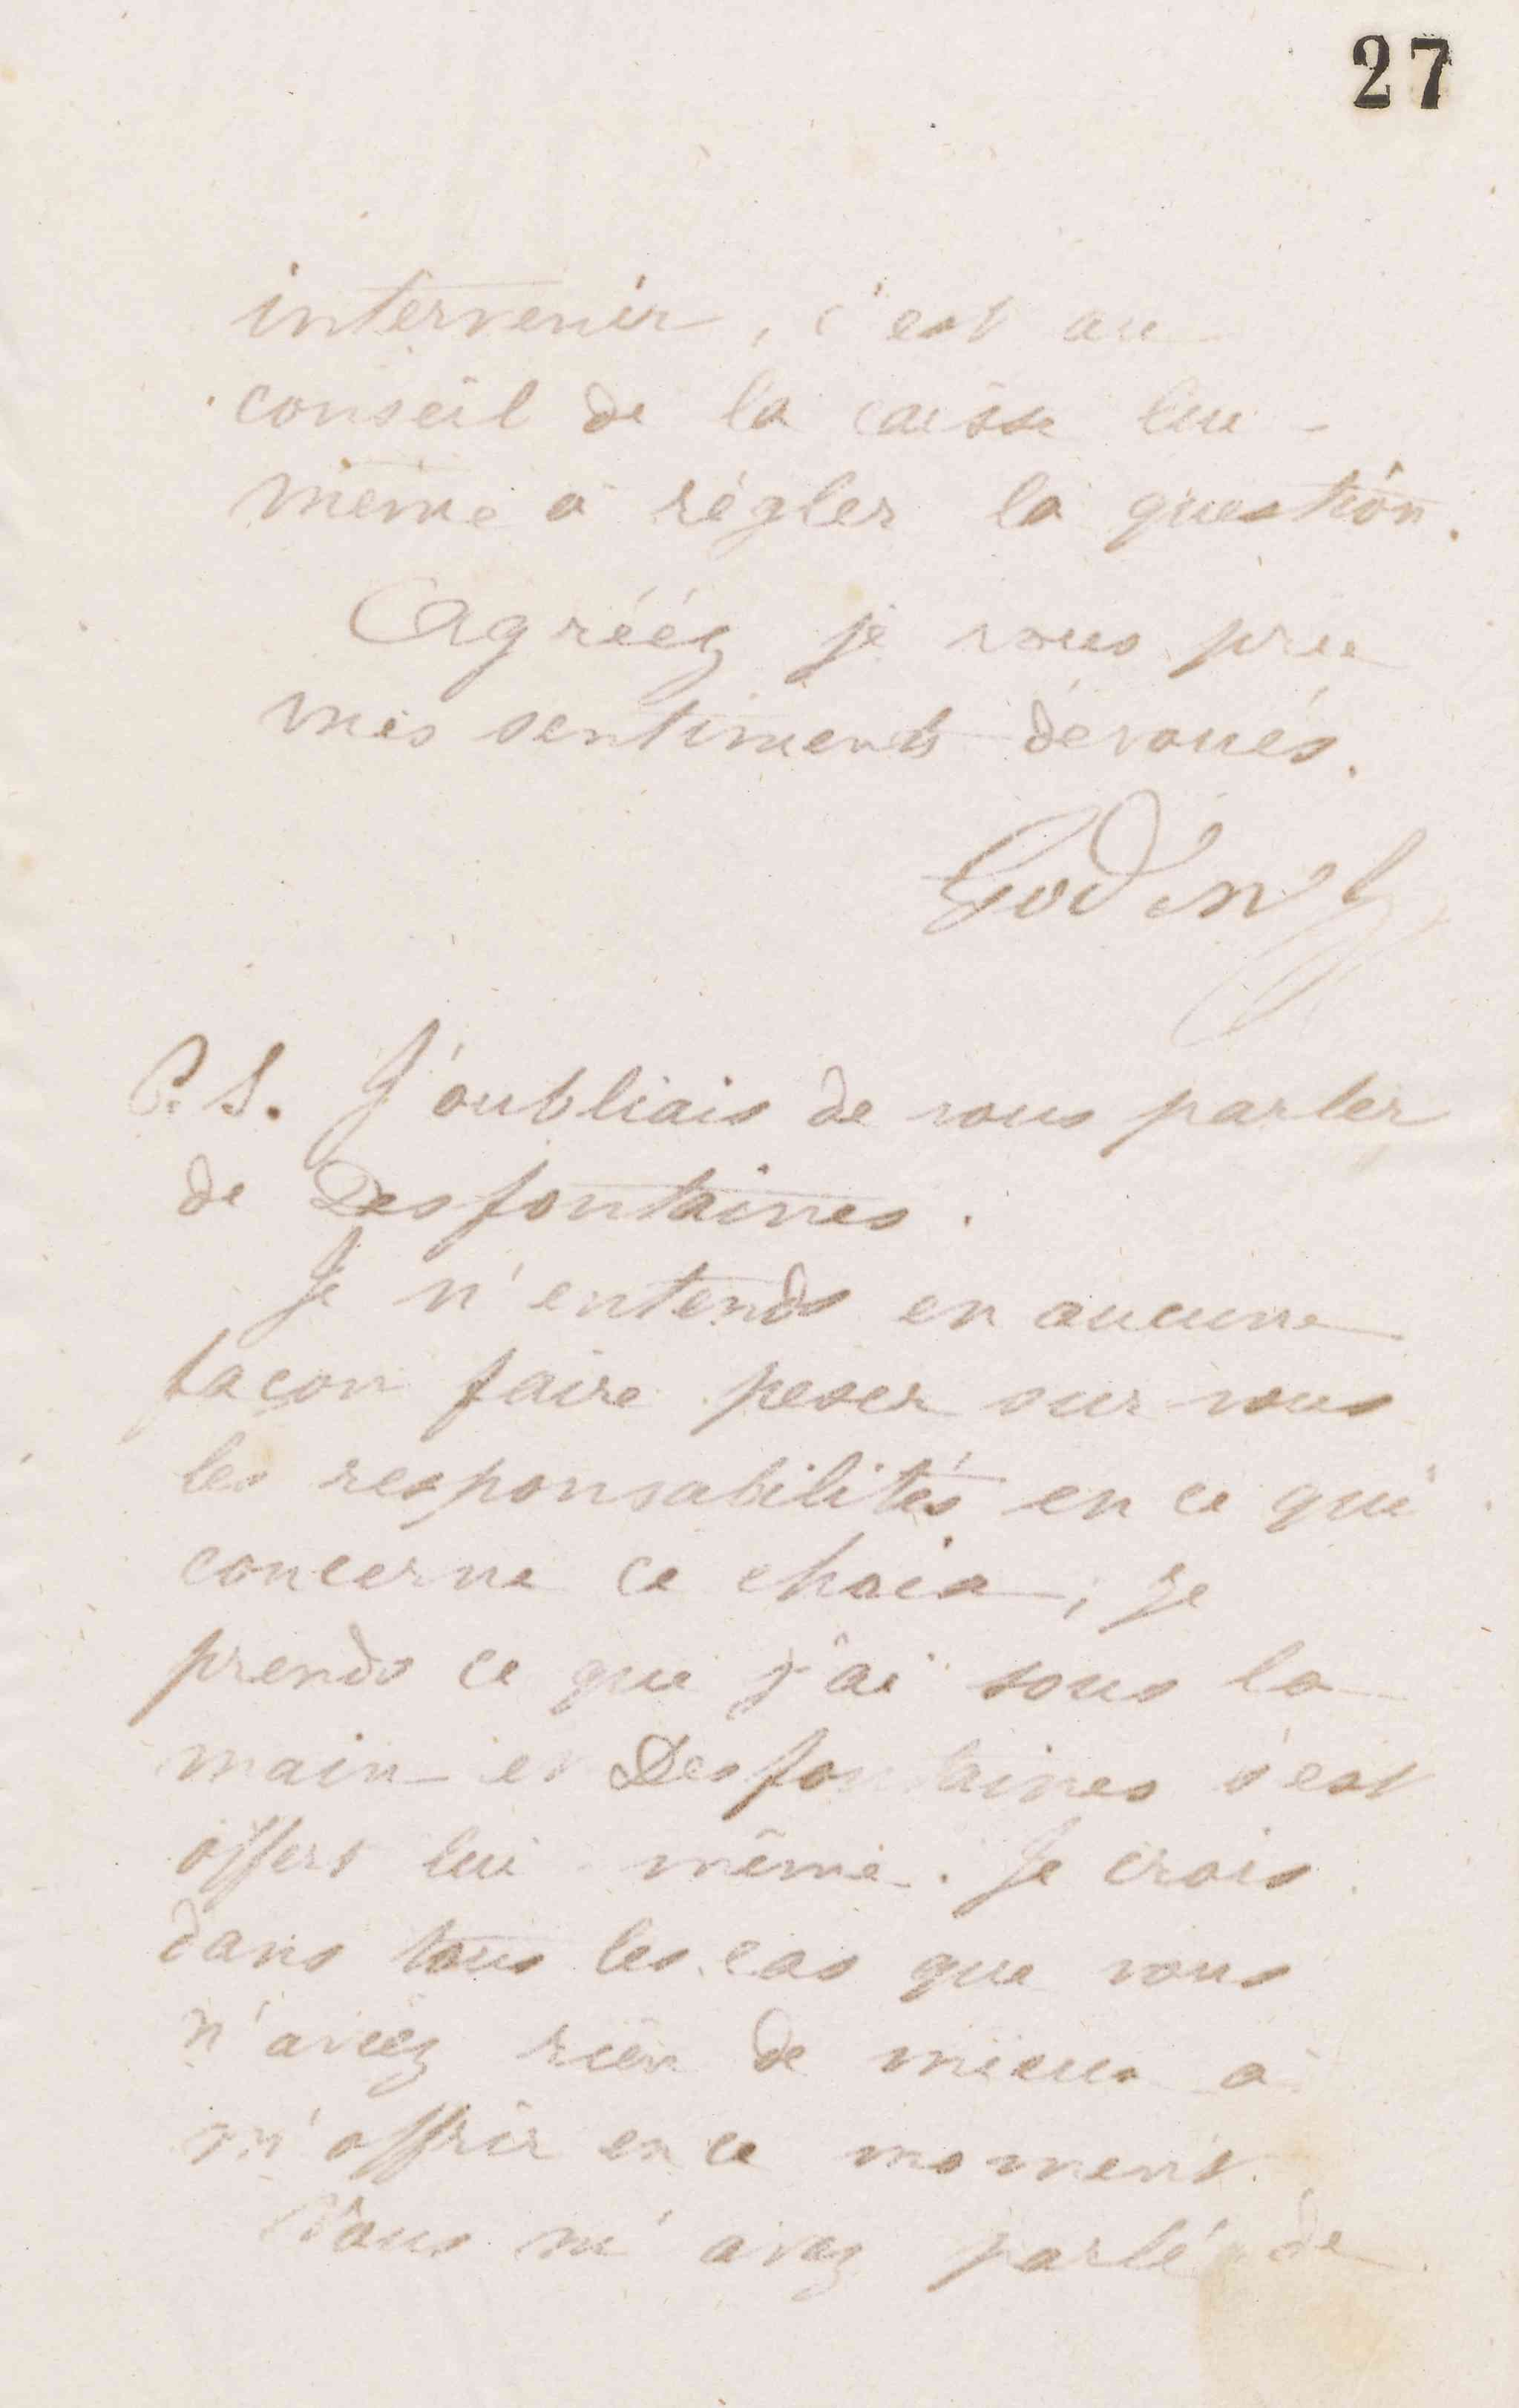 27
intervenir, c'est au
conseil de la caisse lui-
même à régler la question.
Agréez je vous prie
mes sentiments dévoués.
Godin
P.S. J'oubliais de vous parler
de Desfontaines.
Je n'entends en aucune
façon faire peser sur vous
les responsabilités en ce qui
concerne ce choix, je
prends ce que j'ai sous la
main et Desfontaines s'est
offert lui même. Je crois
dans tous les cas que vous
n'aviez rien de mieux à
m'offrir en ce moment.
Vous m'avez parlé de